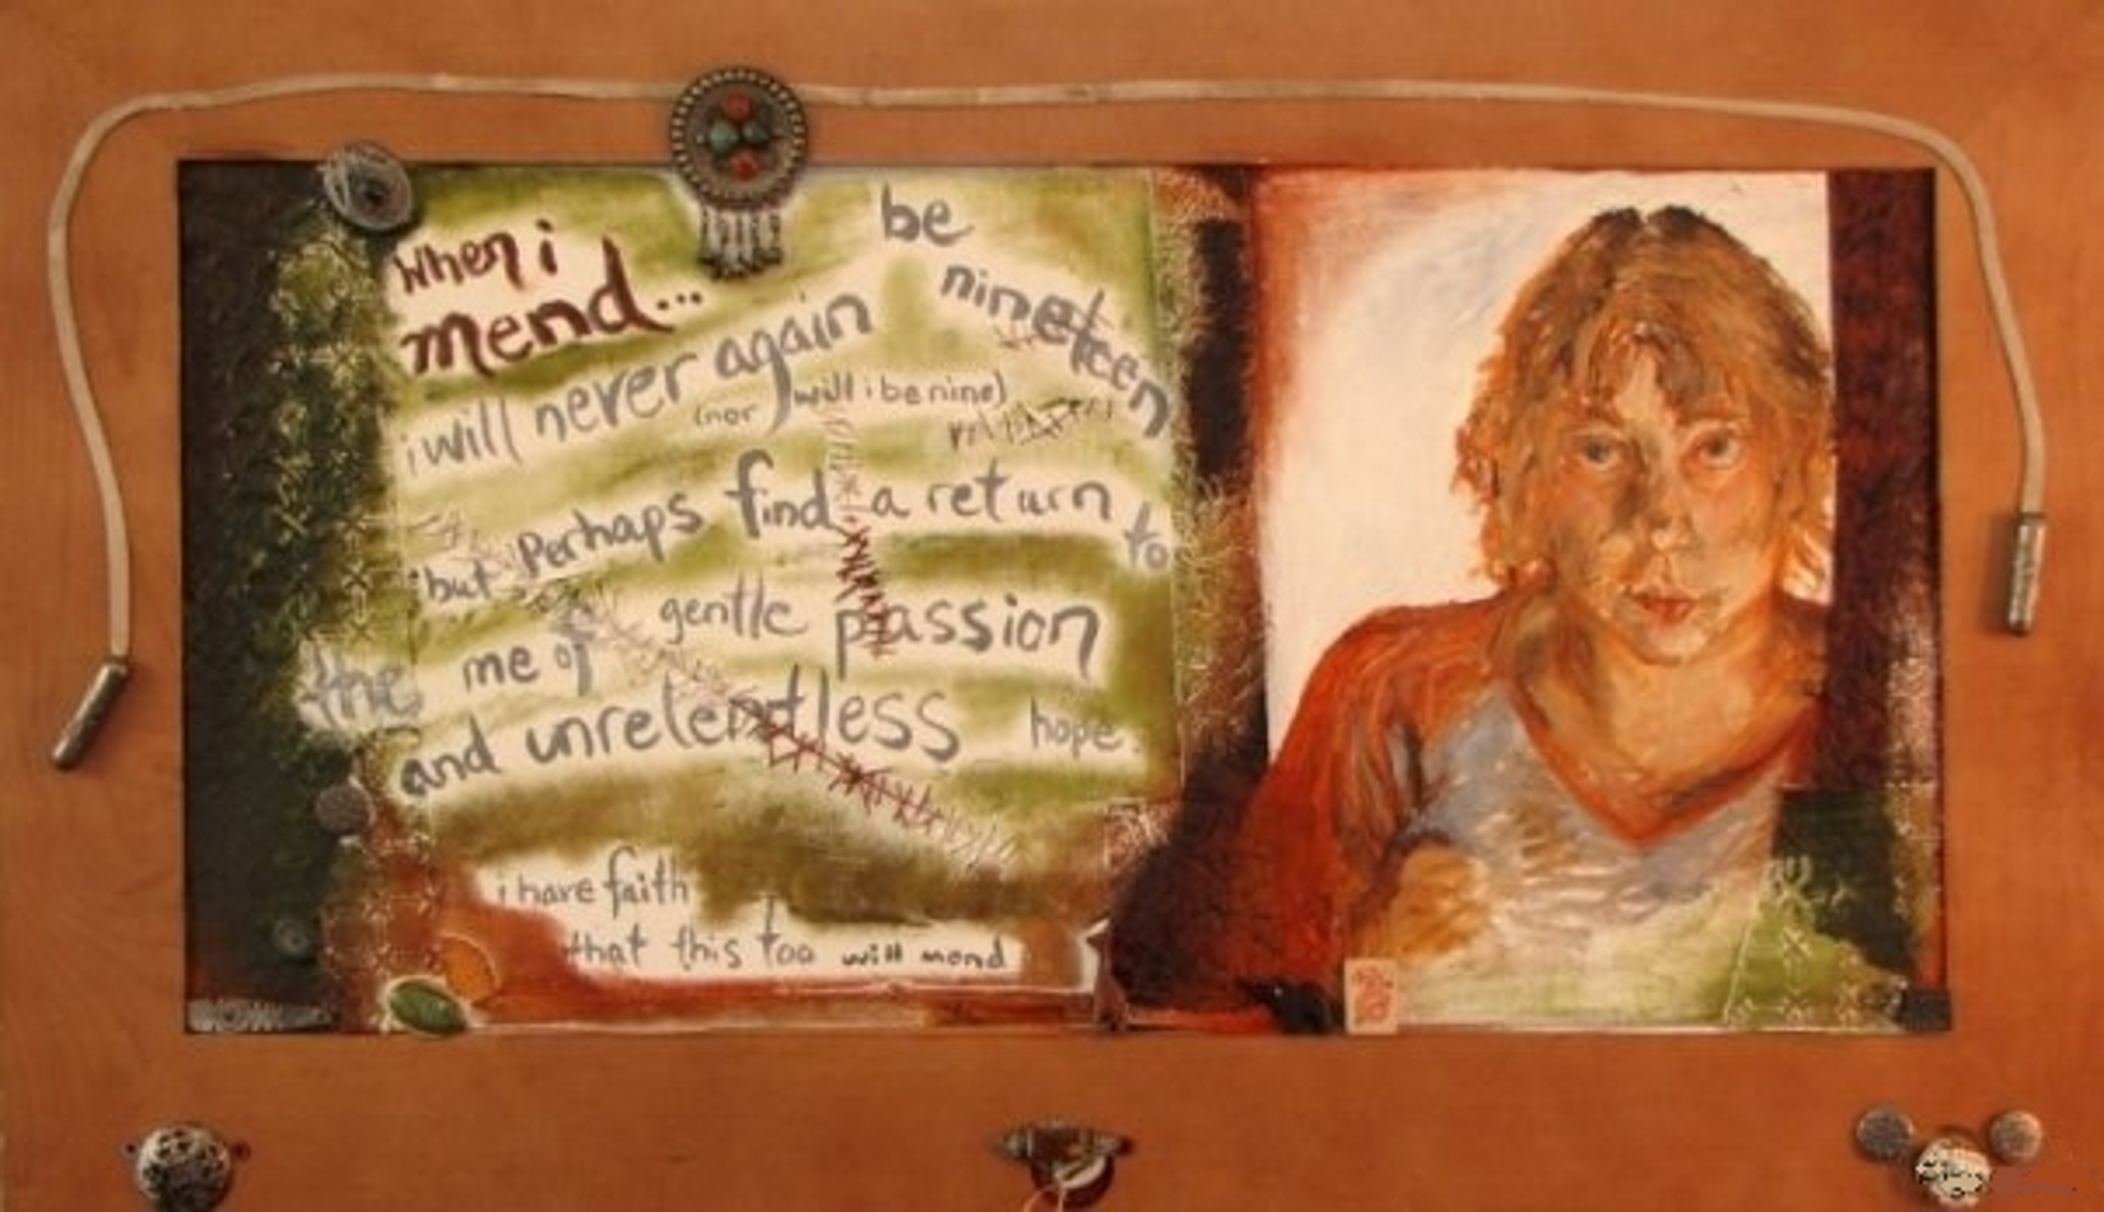 When i
mend...
i will never again be nineteen
(nor will i be nine)
but Perhaps find a return to
the me of gentle passion
and unrelentless hope.
i have faith
that this too will mend